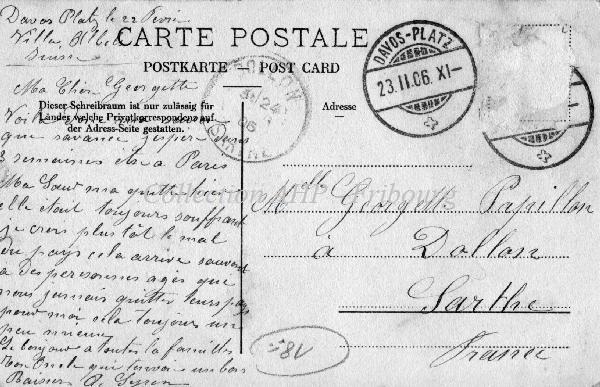 Davos Platz le 22 Février
Villa
Suisse
CARTE POSTALE
POSTKARTE — POST CARD
Ma Chère Georgette
Dieser Schreibraum ist nur zulässig für
Länder welche Privatkorrespondenz auf
der Adress-Seite gestatten.
Adresse
DAVOS-PLATZ
23.II.06. XI—
24
06
SARTHE
que savance jesper dans
3 semaines être a Paris
Ma Sœur ma quitté hier
elle était toujours souffrant
je crois plus tôt le mal
du pays cela arrive souvent
a des personnes agés que
nous jamais quitter leurs pays
pour moi cela toujours un
peu mieux
le bonjour a toutes la familles
Ton Oncle que tenvoie un bon
Baiser
Collection AHP Fribourg
Melle Georgette Papillon
à Dollon
Sarthe
France